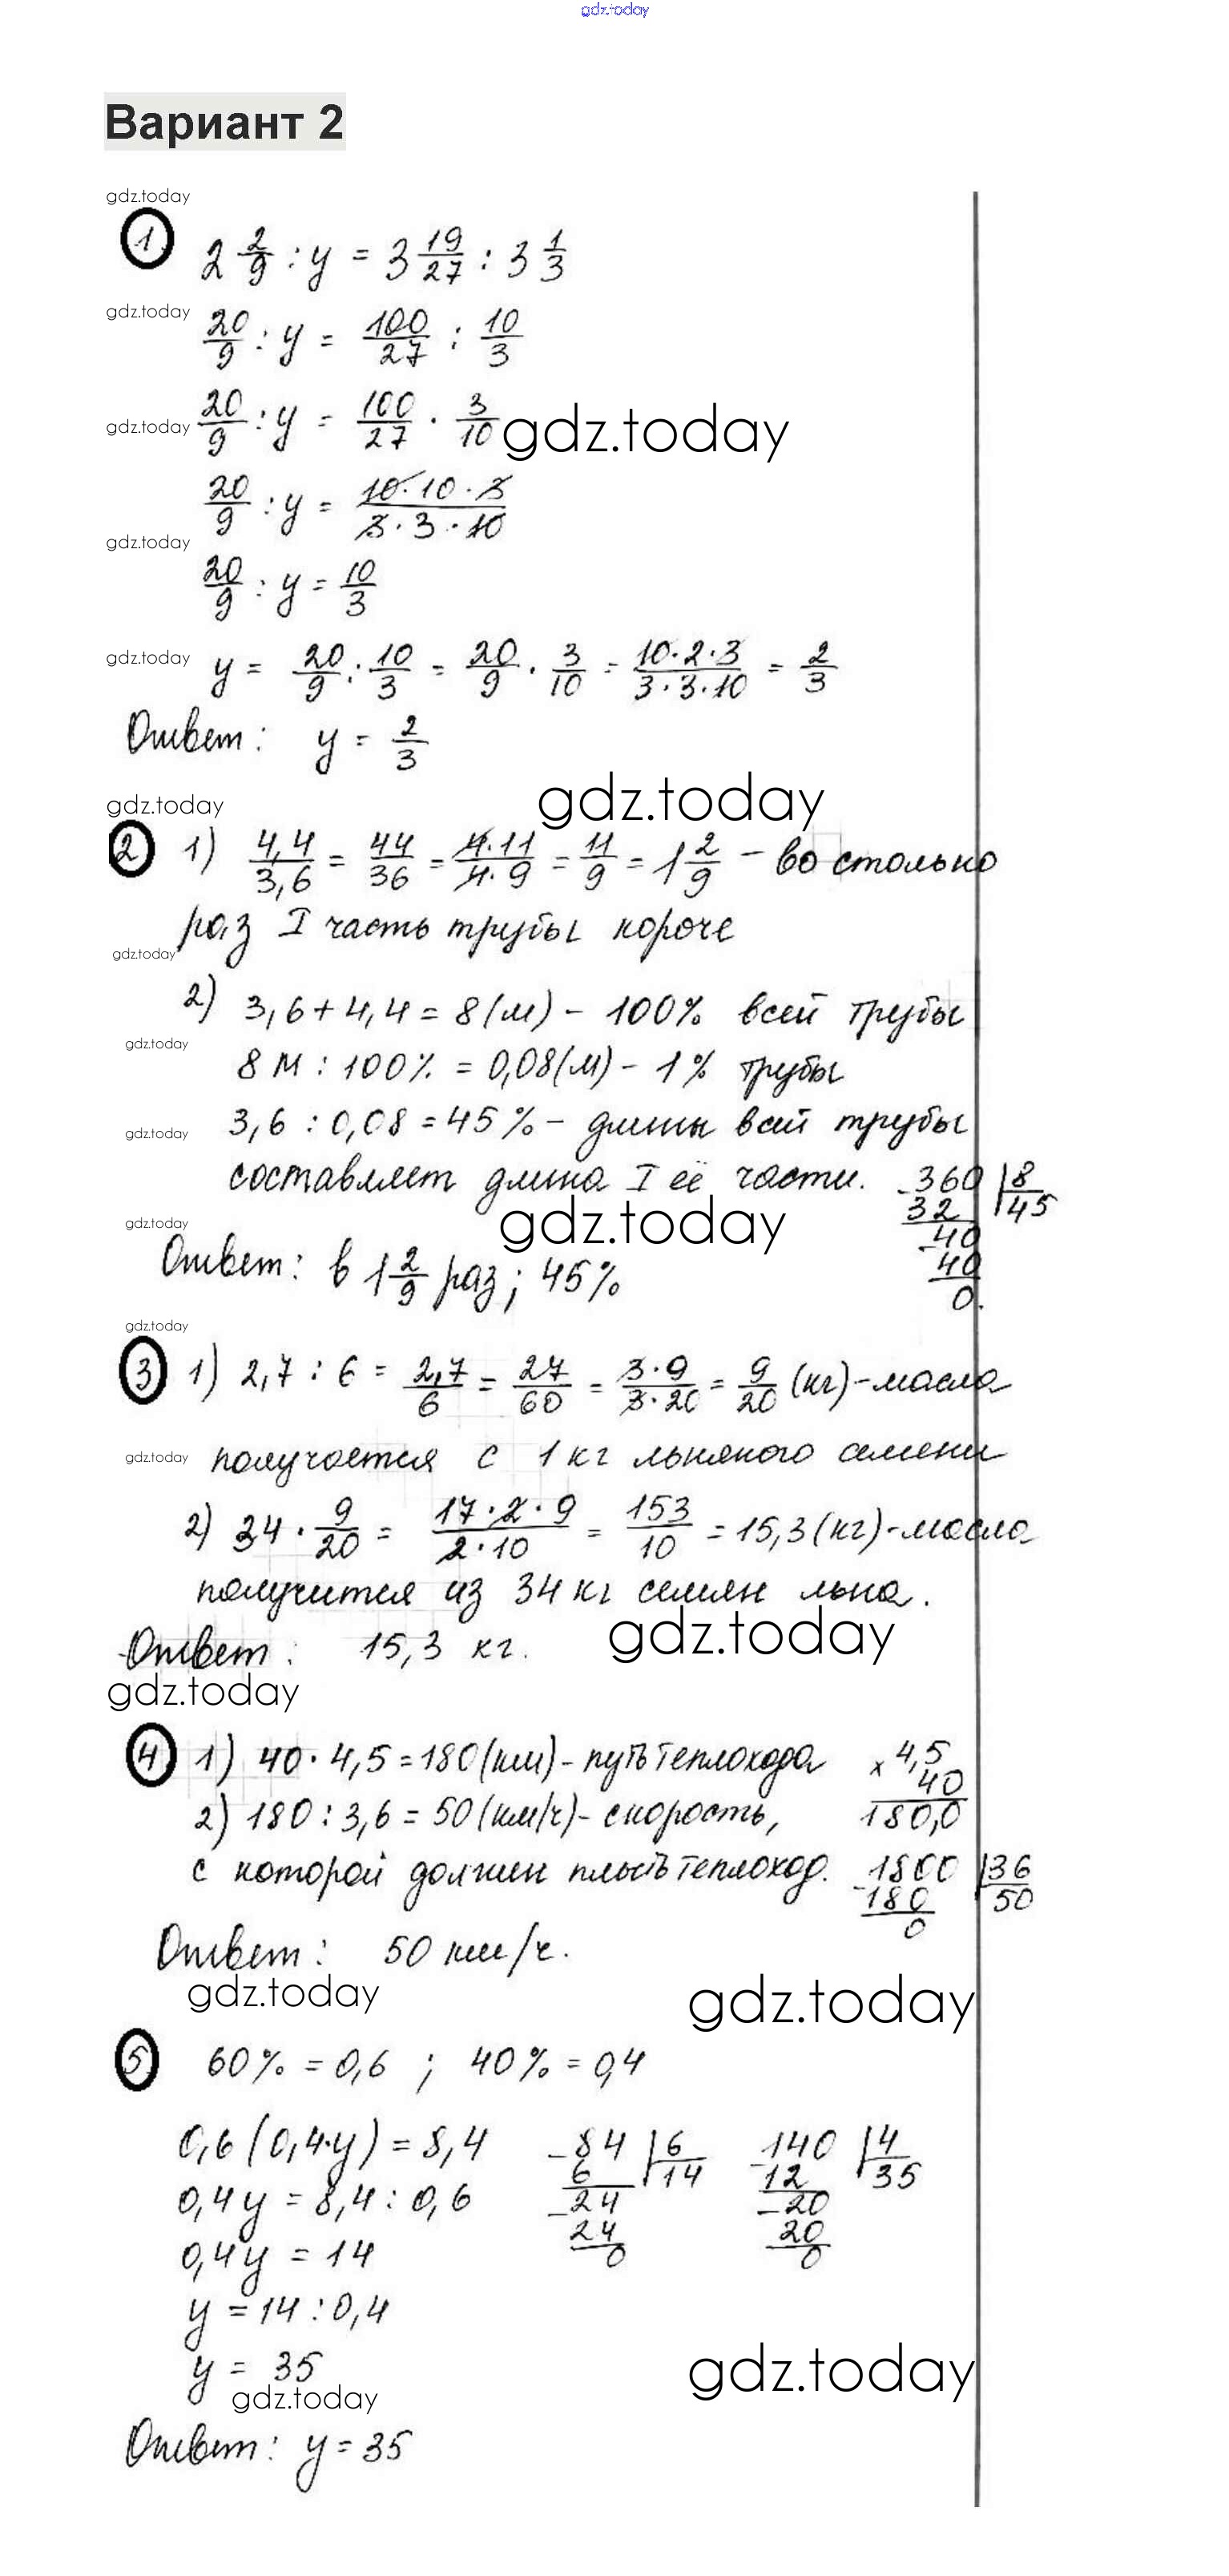 gdz.today
Вариант 2
gdz.today
1 2 2/9 : y = 3 19/27 : 3 1/3
gdz.today
20/9 : y = 100/27 : 10/3
gdz.today 20/9 : y = 100/27 · 3/10 gdz.today
20/9 : y = 10·10·3/3·3·10
gdz.today
20/9 : y = 10/3
gdz.today y = 20/9 : 10/3 = 20/9 · 3/10 = 10·2·3/3·3·10 = 2/3
Ответ: y = 2/3
gdz.today gdz.today
2 1) 4,4/3,6 = 44/36 = 4·11/4·9 = 11/9 = 1 2/9 – во столько
раз I часть трубы короче
gdz.today
2) 3,6 + 4,4 = 8 (м) – 100% всей трубы
gdz.today
8 м : 100% = 0,08 (м) – 1% трубы
gdz.today 3,6 : 0,08 = 45% – длины всей трубы
составляет длина I её части. -360 | 8
32 45
gdz.today gdz.today -40
40
0.
Ответ: в 1 2/9 раз; 45%
gdz.today
3 1) 2,7 : 6 = 2,7/6 = 27/60 = 3·9/3·20 = 9/20 (кг) – масла
gdz.today получается с 1 кг льняного семени
2) 34 · 9/20 = 17·2·9/2·10 = 153/10 = 15,3 (кг) – масла
получится из 34 кг семян льна.
Ответ: 15,3 кг. gdz.today
gdz.today
4 1) 40 · 4,5 = 180 (км) – путь теплохода × 4,5
40
180,0
2) 180 : 3,6 = 50 (км/ч) – скорость,
с которой должен плыть теплоход. -1800 | 36
180 50
0
Ответ: 50 км/ч.
gdz.today gdz.today
5 60% = 0,6 ; 40% = 0,4
0,6 (0,4·y) = 8,4 -84 | 6 -140 | 4
6 14 12 35
0,4y = 8,4 : 0,6 -24 -20
24 20
0 0
0,4y = 14
y = 14 : 0,4
y = 35 gdz.today
gdz.today
Ответ: y = 35